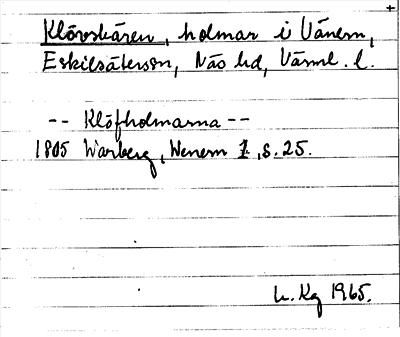 Klövskären, holmar i Vänern,
Eskilsäterson, Näs hd, Värml. l.
-- Klöfholmarna --
1805 Warberg, Wenern 1, s. 25.
Kg 1965.